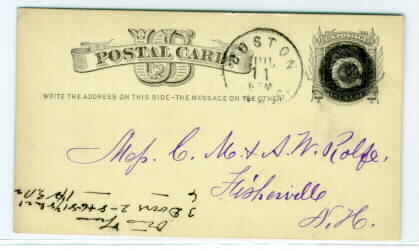 POSTAL CARD
BOSTON
JUL
11
WRITE THE ADDRESS ON THIS SIDE—THE MESSAGE ON THE OTHER
Mess. C. M. & A. W. Rolfe,
Fisherville
N. H.
3 Doors